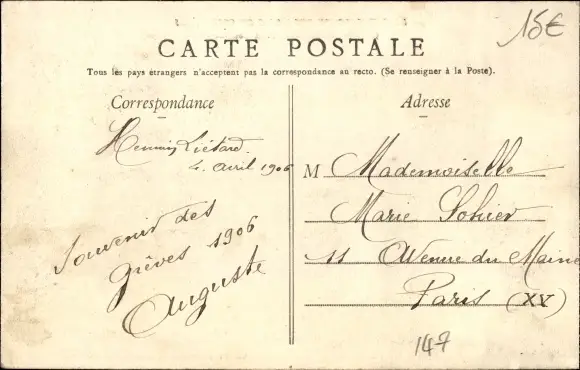 15€
CARTE POSTALE
Tous les pays étrangers n'acceptent pas la correspondance au recto. (Se renseigner à la Poste).
Correspondance
Adresse
Hennin, Liétard.
4. avril 1906
Souvenir des
grèves 1906
Auguste
M Mademoiselle
Marie Sohier
11 Avenue du Maine
Paris (XV)
147